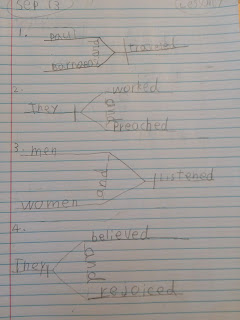 Sep 13
1. Paul
and
traveled
2.
worked
They
and
Preached
3. men
and
Listened
women
4.
believed
They
and
rejoiced